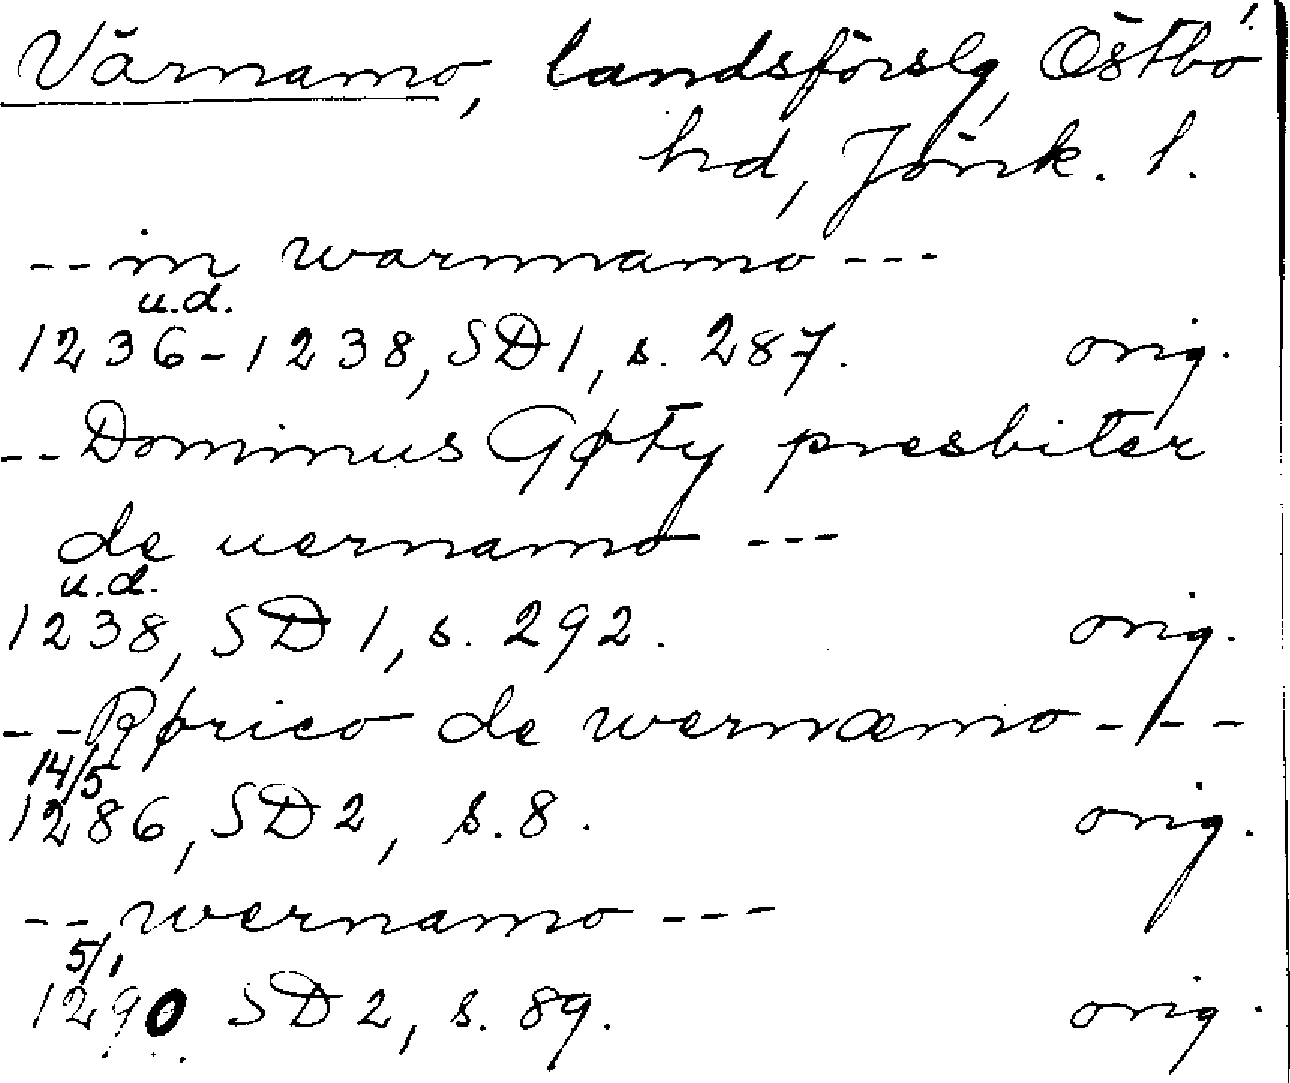 Värnamo, landsförslg, Östbo
hd, Jönk. l.
-- in warnnamo ---
u.d.
1236-1238, SD1, s. 287. orig.
-- Dominus Gøty presbiter
de uernamo ---
u.d.
1238, SD 1, s. 292. orig.
-- Rørico de wernæmo ---
14/5
1286, SD 2, s. 8. orig.
-- wernamo ---
5/1
1290 SD 2, s. 89. orig.